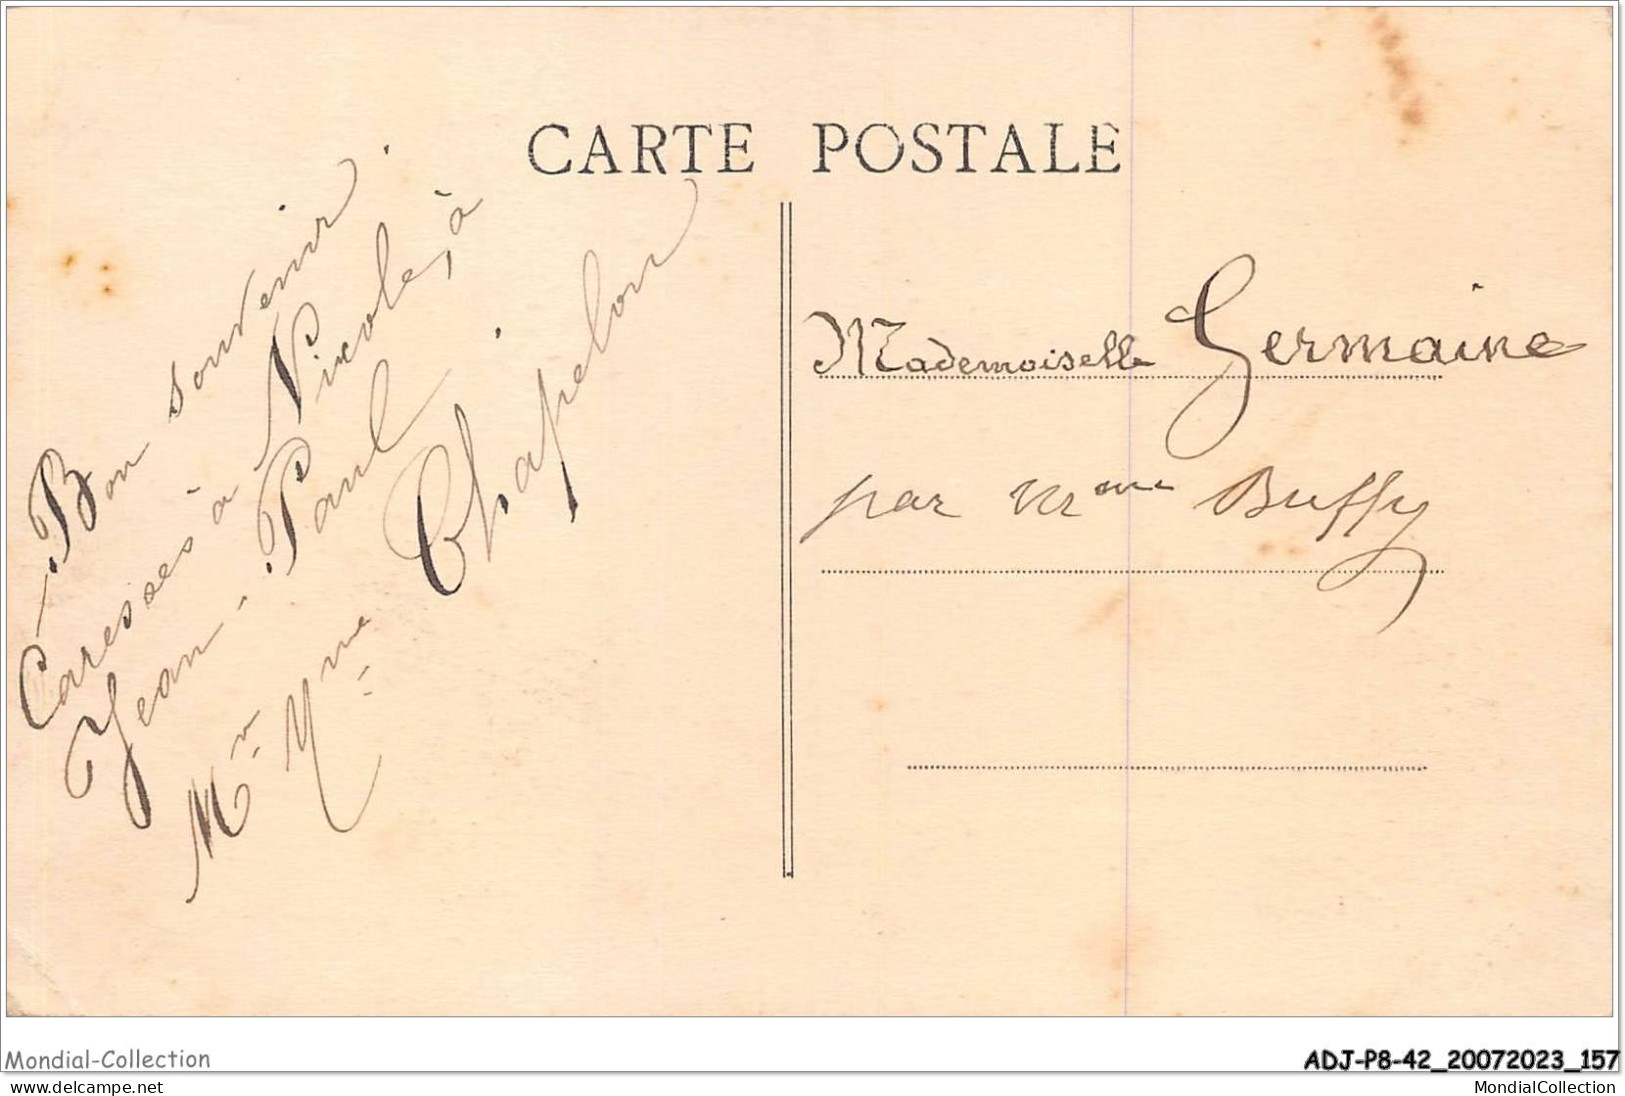 CARTE POSTALE
Bon souvenir.
Caresses à Nicole, à
Jean-Paul.
Mr Mme Chapelon
Mademoiselle Germaine
par Mme Buffy
Mondial-Collection
ADJ-P8-42_20072023_157
delcampe.net
MondialCollection